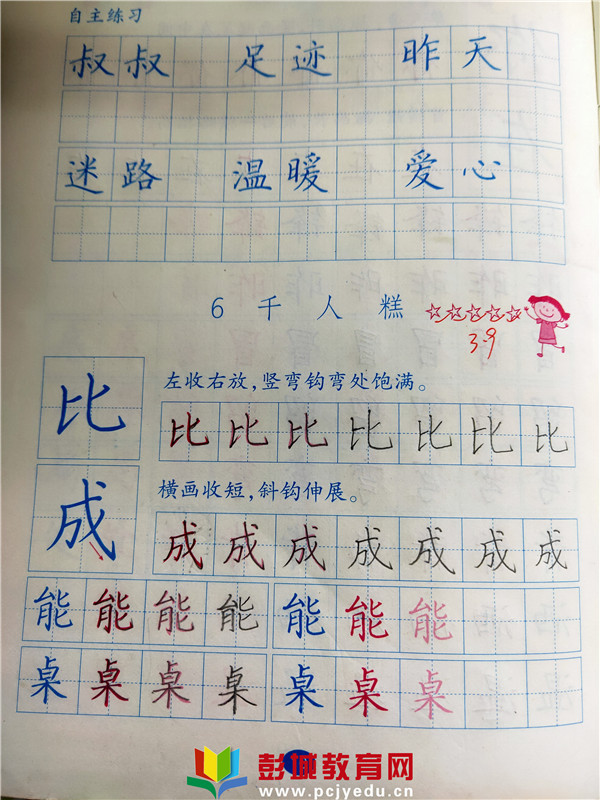 自主练习
叔叔 足迹 昨天
迷路 温暖 爱心
6 千人糕
3.9
左收右放，竖弯钩弯处饱满。
比 比比比比比比比
横画收短，斜钩伸展。
成 成成成成成成成
能能能能 能能能
桌桌桌桌 桌桌桌
彭城教育网
www.pcjyedu.cn